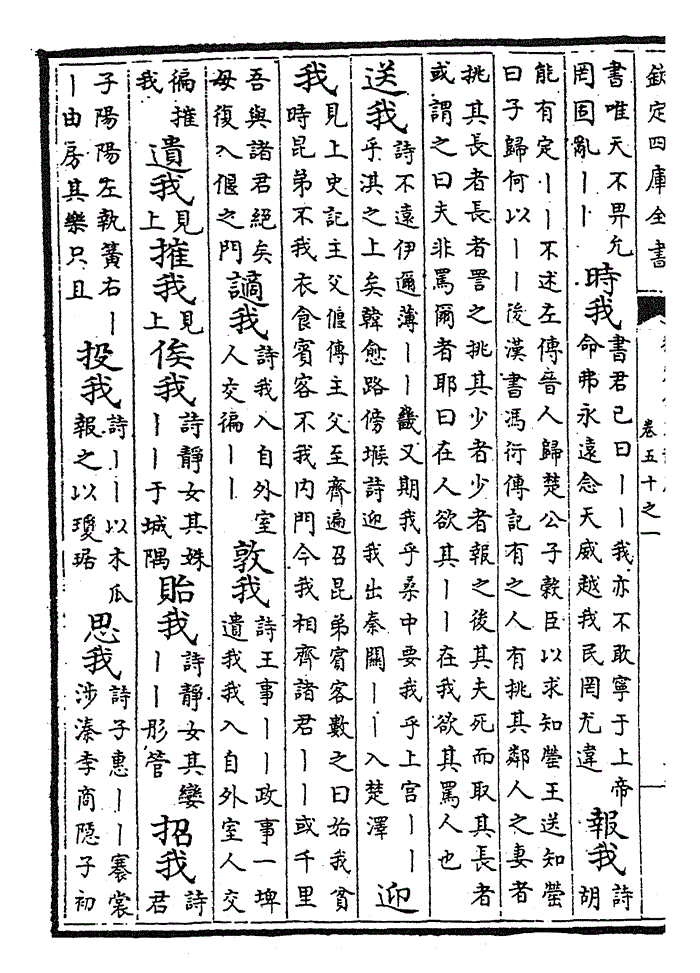 欽定四庫全書
卷五十之一
書唯天不畀允
罔固亂丨丨
時我
書君已曰丨丨我亦不敢寧于上帝
命弗永遠念天威越我民罔尤違
報我
詩
胡
能有定丨丨不述左傳晉人歸楚公子榖臣以求知罃王送知罃
曰子歸何以丨丨後漢書馮衍傳記有之人有挑其鄰人之妻者
挑其長者長者詈之挑其少者少者報之後其夫死而取其長者
或謂之曰夫非罵爾者耶曰在人欲其丨丨在我欲其罵人也
送我
詩不遠伊邇薄丨丨畿又期我乎桑中要我乎上宮丨丨
乎淇之上矣韓愈路傍堠詩迎我出秦關丨丨入楚澤
迎
我
見上史記主父偃傳主父至齊遍召昆弟賓客數之曰始我貧
時昆弟不我衣食賓客不我内門今我相齊諸君丨丨或千里
吾與諸君絕矣
毋復入偃之門
謫我
詩我入自外室
人交徧丨丨
敦我
詩王事丨丨政事一埤
遺我我入自外室人交
徧摧
我
遺我
見
上
摧我
見
上
俟我
詩靜女其姝
丨丨于城隅
貽我
詩靜女其孌
丨丨彤管
招我
詩
君
子陽陽左執簧右丨
丨由房其樂只且
投我
詩丨丨以木瓜
報之以瓊琚
思我
詩子惠丨丨褰裳
涉溱李商隱子初